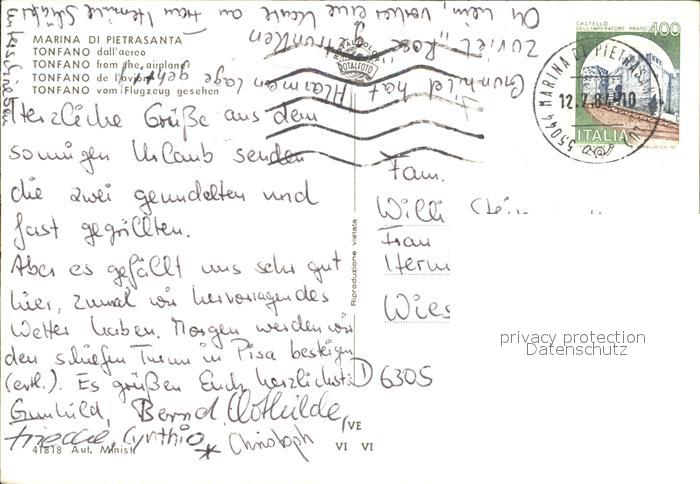 MARINA DI PIETRASANTA
TONFANO dall'aereo
TONFANO from the airplane
TONFANO de l'avion
TONFANO vom Flugzeug gesehen
Herzliche Grüße aus dem
sonnigen Urlaub senden
die zwei genudelten und
fast gegrillten.
Aber es gefällt uns sehr gut
hier, zumal wir hervorragendes
Wetter haben. Morgen werden wir
den schiefen Turm in Pisa besteigen
(evtl.). Es grüßen Euch herzlichst:
Gunhild, Bernd, Clothilde,
Friedel, Cynthia,
* Christoph
41818 Aut. Minist.
VE
VI VI
Gunhild hat
zuviel „Rose" getrunken
Oh nein, vorher eine Karte an Frau Hermine
unterschrieben
Riproduzione vietata
CASTELLO
DELL'IMPERATORE PRATO
400
ITALIA
55044 MARINA DI PIETRASANTA LU
12.7.8
Fam.
Willi
Frau
Herm
Wies
D 6305
privacy protection
Datenschutz